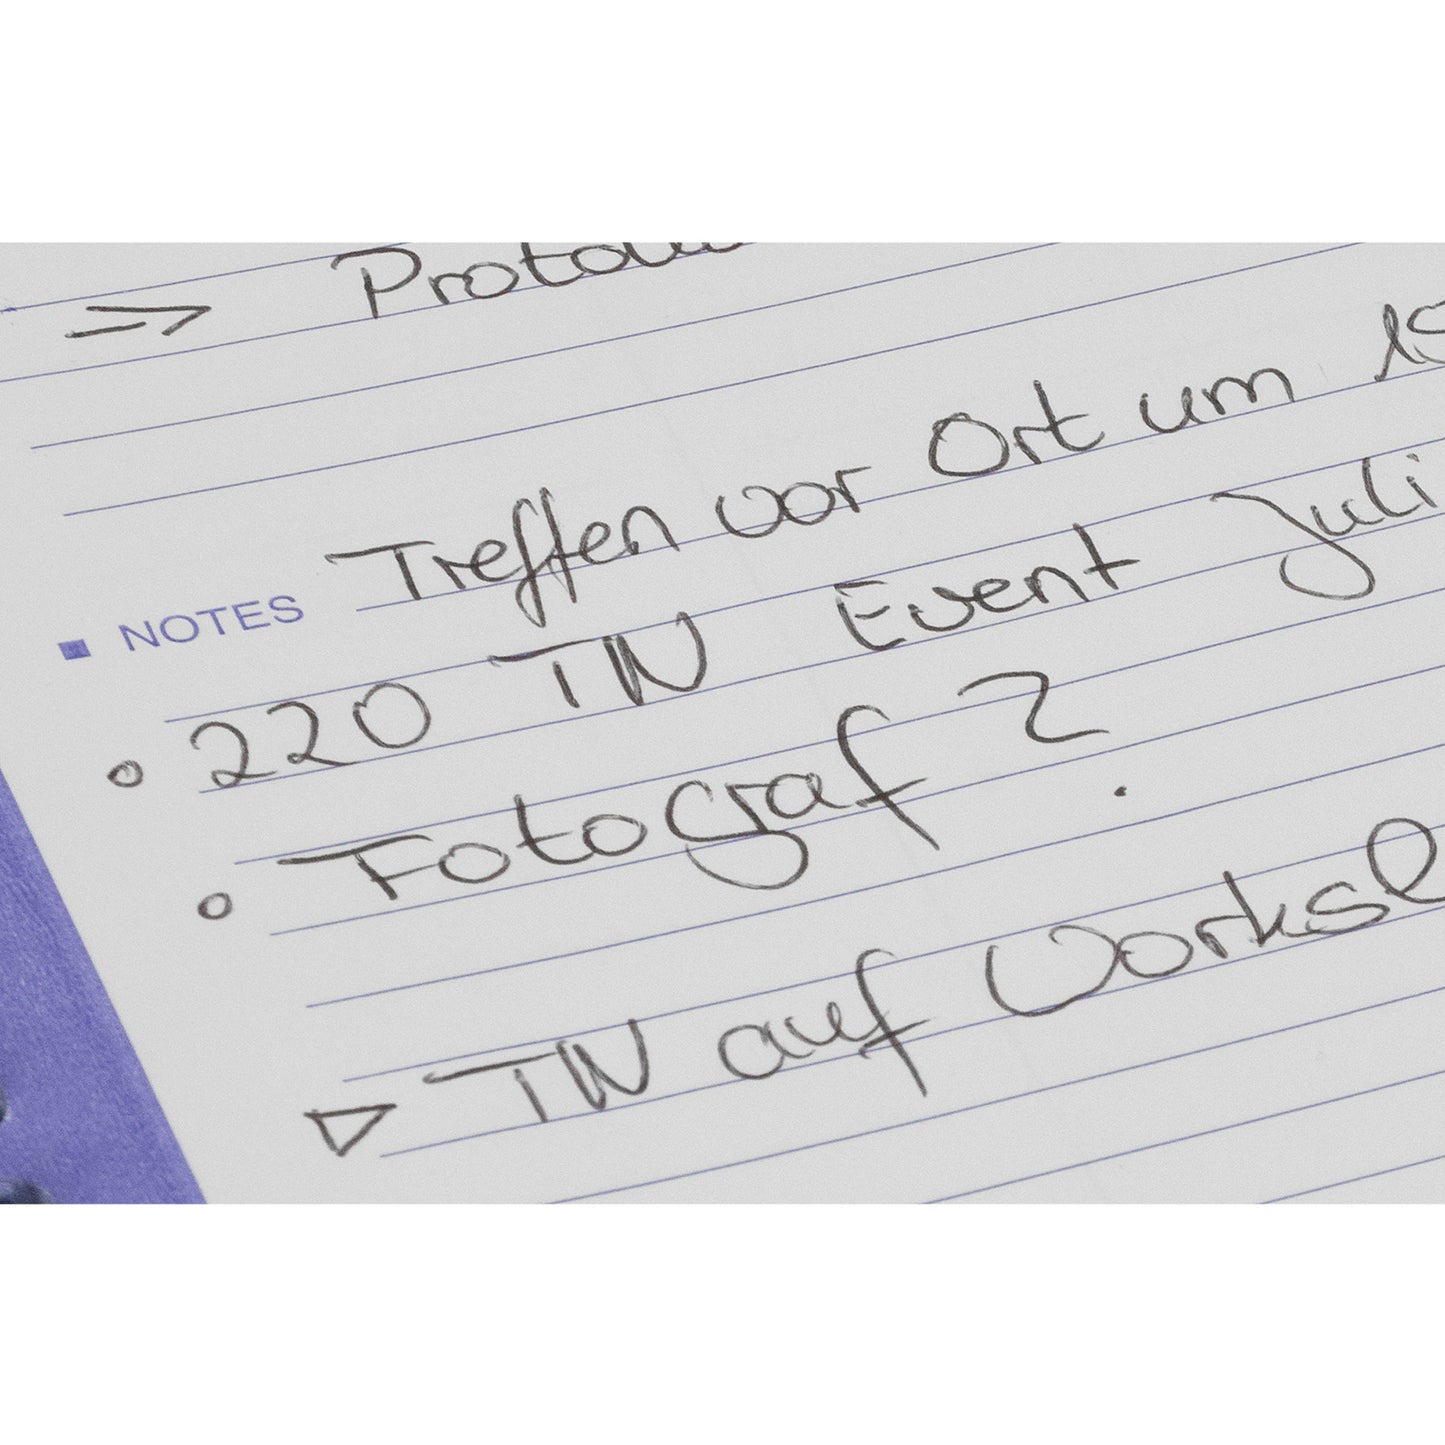 => Proto
Treffen vor Ort um
■ NOTES
° 220 TN Event Juli
° Fotograf ?
▷ TN auf Works